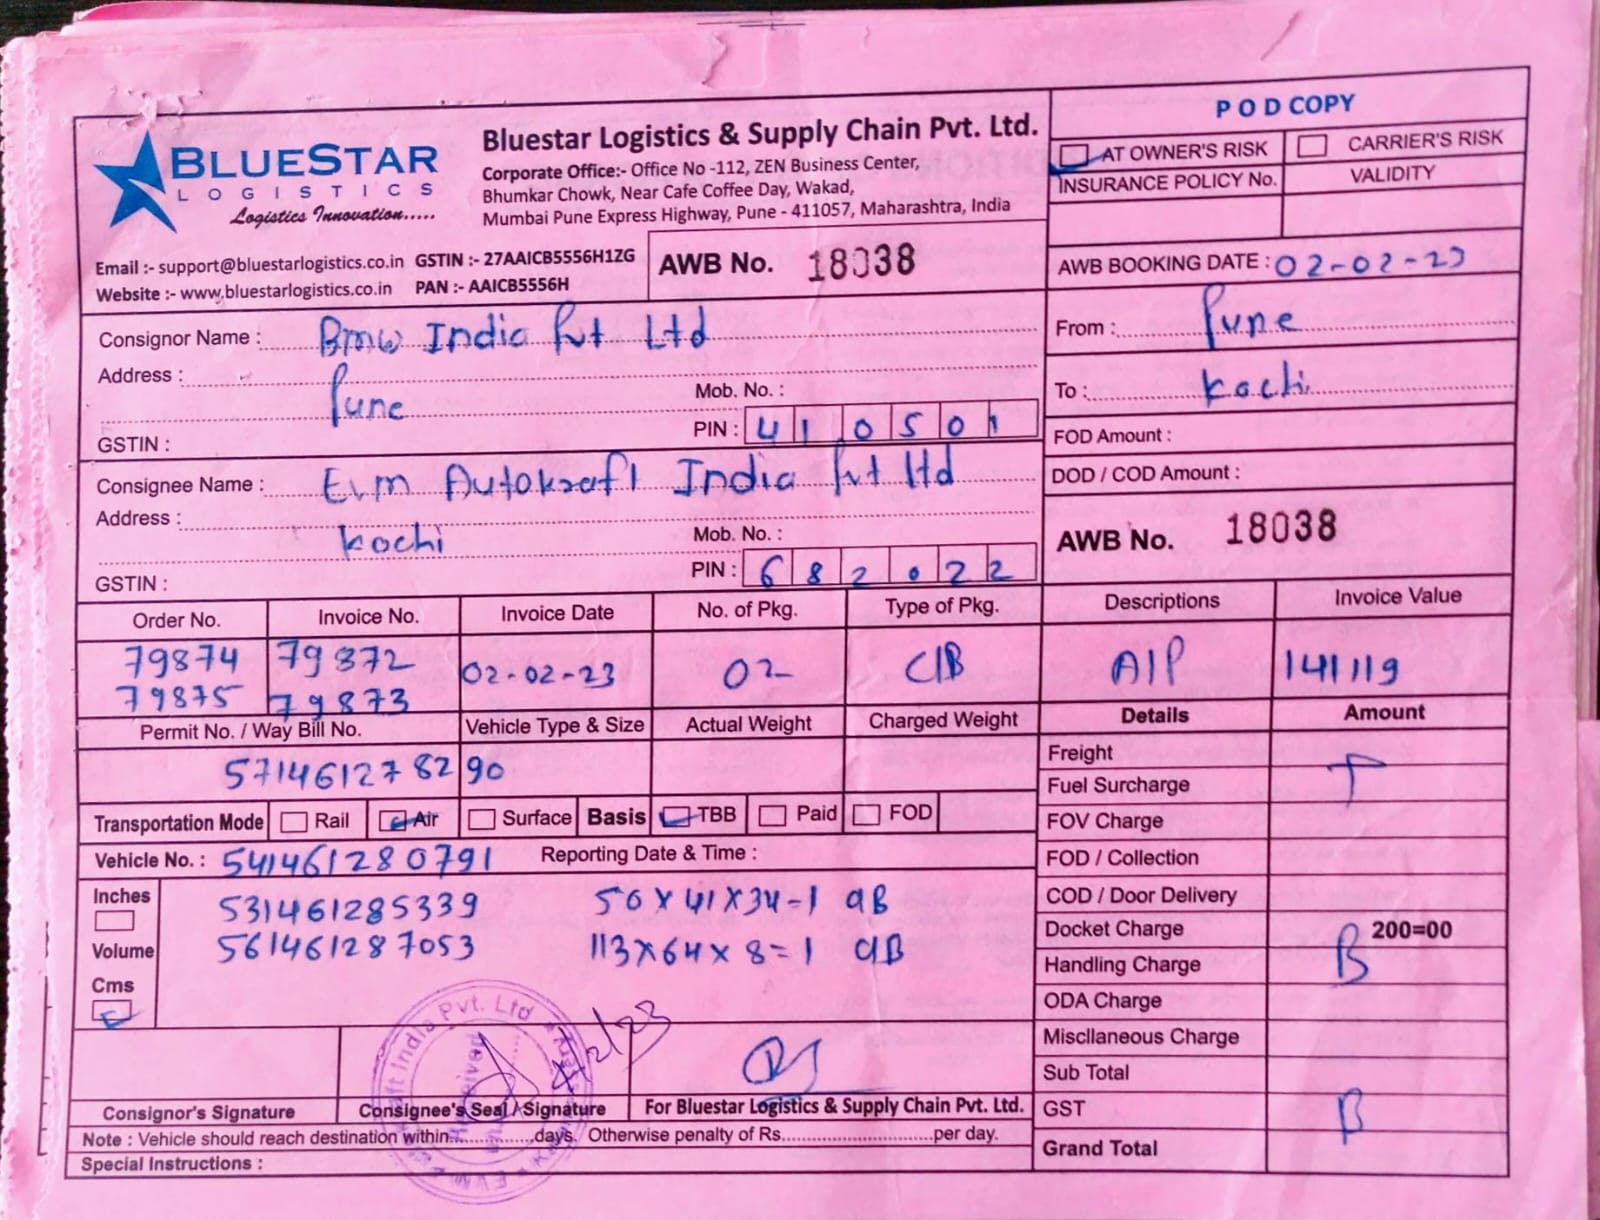 POD COPY
BLUESTAR
LOGISTICS
Logistics Innovation.....
Bluestar Logistics & Supply Chain Pvt. Ltd.
Corporate Office:- Office No -112, ZEN Business Center,
Bhumkar Chowk, Near Cafe Coffee Day, Wakad,
Mumbai Pune Express Highway, Pune - 411057, Maharashtra, India
AT OWNER'S RISK CARRIER'S RISK
INSURANCE POLICY No. VALIDITY
Email :- support@bluestarlogistics.co.in GSTIN :- 27AAICB5556H1ZG
Website :- www.bluestarlogistics.co.in PAN :- AAICB5556H
AWB No. 18038
AWB BOOKING DATE : 02-02-23
Consignor Name : Bmw India Pvt Ltd
Address : Pune
Mob. No. :
GSTIN :
PIN : 410501
From : Pune
To : Kochi
FOD Amount :
DOD / COD Amount :
Consignee Name : Evm Autokraft India Pvt ltd
Address : Kochi
Mob. No. :
GSTIN :
PIN : 682022
AWB No. 18038
Order No. Invoice No. Invoice Date No. of Pkg. Type of Pkg. Descriptions Invoice Value
79874 79872 02-02-23 02 C/B A/P 141119
79875 79873
Permit No. / Way Bill No. Vehicle Type & Size Actual Weight Charged Weight Details Amount
571461278290
Transportation Mode Rail Air Surface Basis TBB Paid FOD
Vehicle No. : 541461280791 Reporting Date & Time :
Inches
531461285339 50 x 41 x 34 = 1 CB
Volume
561461287053 113 x 64 x 8 = 1 CB
Cms
Freight
Fuel Surcharge
FOV Charge
FOD / Collection
COD / Door Delivery
Docket Charge 200=00
Handling Charge
ODA Charge
Miscllaneous Charge
Sub Total
GST
Grand Total
T
B
B
India Pvt. Ltd
Received
Consignor's Signature Consignee's Seal / Signature For Bluestar Logistics & Supply Chain Pvt. Ltd.
Note : Vehicle should reach destination within..............days. Otherwise penalty of Rs..............................per day.
Special Instructions :